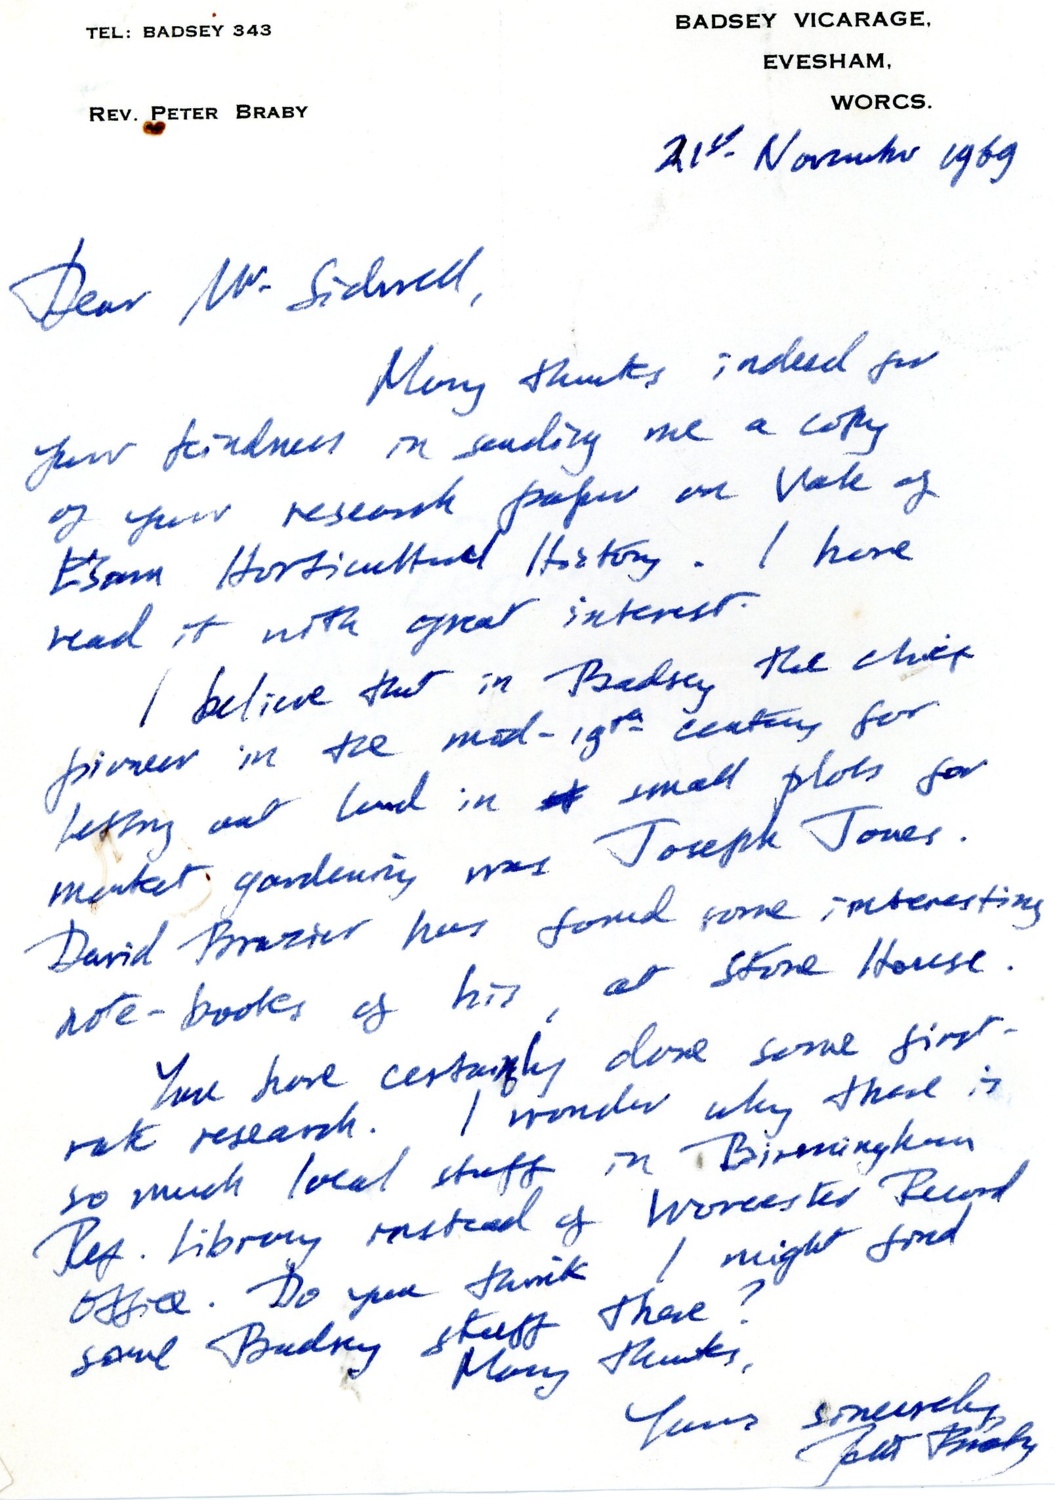 TEL: BADSEY 343
BADSEY VICARAGE,
EVESHAM,
REV. PETER BRABY
WORCS.
21st November 1969
Dear Mr. Sidwell,
Many thanks indeed for
your kindness in sending me a copy
of your research paper on Vale of
E'sham Horticultural History. I have
read it with great interest.
I believe that in Badsey the chief
pioneer in the mid-19th century for
letting out land in small plots for
market gardening was Joseph Jones.
David Brazier has found some interesting
note-books of his, at Stone House.
You have certainly done some first-
rate research. I wonder why there is
so much local stuff in Birmingham
Ref. Library instead of Worcester Record
Office. Do you think I might find
some Badsey stuff there?
Many thanks,
Yours sincerely,
Peter Braby